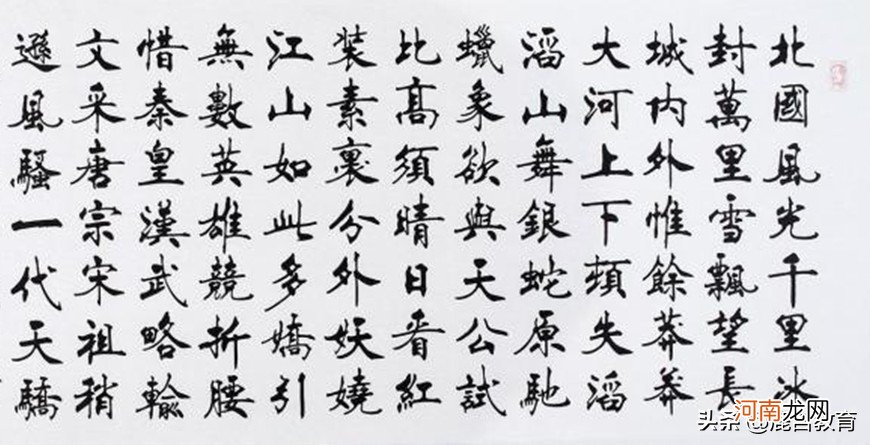 北國風光千里冰
封萬里雪飄望長
城内外惟餘莽莽
大河上下頓失滔
滔山舞銀蛇原馳
蠟象欲與天公試
比高須晴日看紅
装素裹分外妖嬈
江山如此多嬌引
無數英雄競折腰
惜秦皇漢武略輸
文采唐宗宋祖稍
遜風騷一代天驕
头条 教育
河南龙网